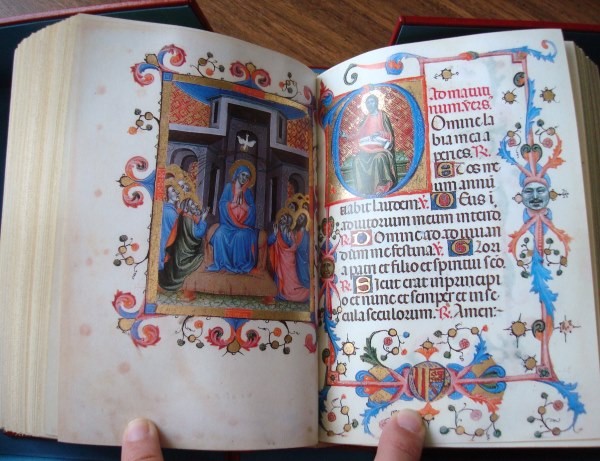 Ad matuti
num. vers.
Domine la
bia mea a
peries. R.
Et os me
um annu
tiabit laudem. V. Deus i
adiutorium meum intend
R. Domine ad adiuuan
dum me festina. V. Glori
a patri et filio et spiritui sco.
R. Sicut erat in principio
et nunc et semper et in se
cula seculorum. R. Amen:-